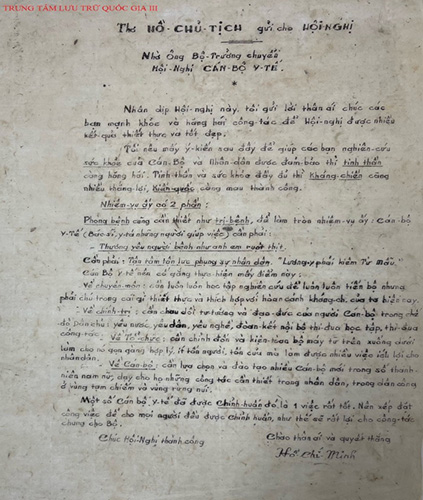 TRUNG TÂM LƯU TRỮ QUỐC GIA III
Thơ HỒ-CHỦ-TỊCH gửi cho HỘI-NGHỊ
Nhờ Ông Bộ-Trưởng chuyển
Hội-Nghị CÁN-BỘ Y-TẾ.
*
Nhân dịp Hội-nghị này, tôi gửi lời thân ái chúc các
bạn mạnh khỏe và hăng hái công-tác để Hội-nghị được nhiều
kết quả thiết thực và tốt đẹp.
Tôi nêu mấy ý-kiến sau đây để giúp các bạn nghiên-cứu
sức khỏe của Cán-Bộ và Nhân-dân được đảm bảo thì tinh thần
càng hăng hái. Tinh thần và sức khỏe đầy đủ thì Kháng-chiến càng
nhiều thắng lợi, Kiến-quốc càng mau thành công.
Nhiệm-vụ ấy có 2 phần:
Phòng bệnh cũng cần thiết như trị-bệnh, để làm tròn nhiệm-vụ ấy: Cán-bộ
Y-Tế (Bác-sĩ, y-tá những người giúp việc) cần phải:
- Thương yêu người bệnh như anh em ruột thịt.
Cần phải: Tận tâm tận lực phụng sự nhân dân. "Lương-y phải kiêm Từ Mẫu."
Cán Bộ Y-tế nên cố gắng thực hiện mấy điểm này:
Về chuyên-môn: cần luôn luôn học tập nghiên cứu để luôn luôn tiến bộ nhưng
phải chú trọng cái gì thiết thực và thích hợp với hoàn cảnh kháng-ch. của ta hiện nay.
Về chính-trị: cần trau dồi tư tưởng và đạo-đức của người Cán-bộ trong chế
độ Dân chủ: yêu nước, yêu dân, yêu nghề, đoàn-kết nội bộ thi-đua học tập, thi-đua
công-tác.
- Về Tổ-chức: cần chỉnh đốn và kiện-toàn bộ máy từ trên xuống dưới
làm cho nó gọn gàng hợp lý, ít tốn người, tốn của mà làm được nhiều việc ích lợi cho
nhân dân.
Về Cán-bộ: cần lựa chọn và đào tạo nhiều Cán-bộ mới trong số thanh-
niên nam nữ, dạy cho họ những công tác cần thiết trong nhân dân, trong dân công
ở vùng tạm chiếm và vùng rừng núi.
Một số Cán bộ y-tế đã được Chỉnh-huấn đó là 1 việc rất tốt. Nên xếp đặt
công việc để cho mọi người đều được Chỉnh huấn, như thế sẽ rất lợi cho công-tác
chung cho Bộ.
Chúc Hội-Nghị thành công
Chào thân ái và quyết thắng
Hồ Chí Minh